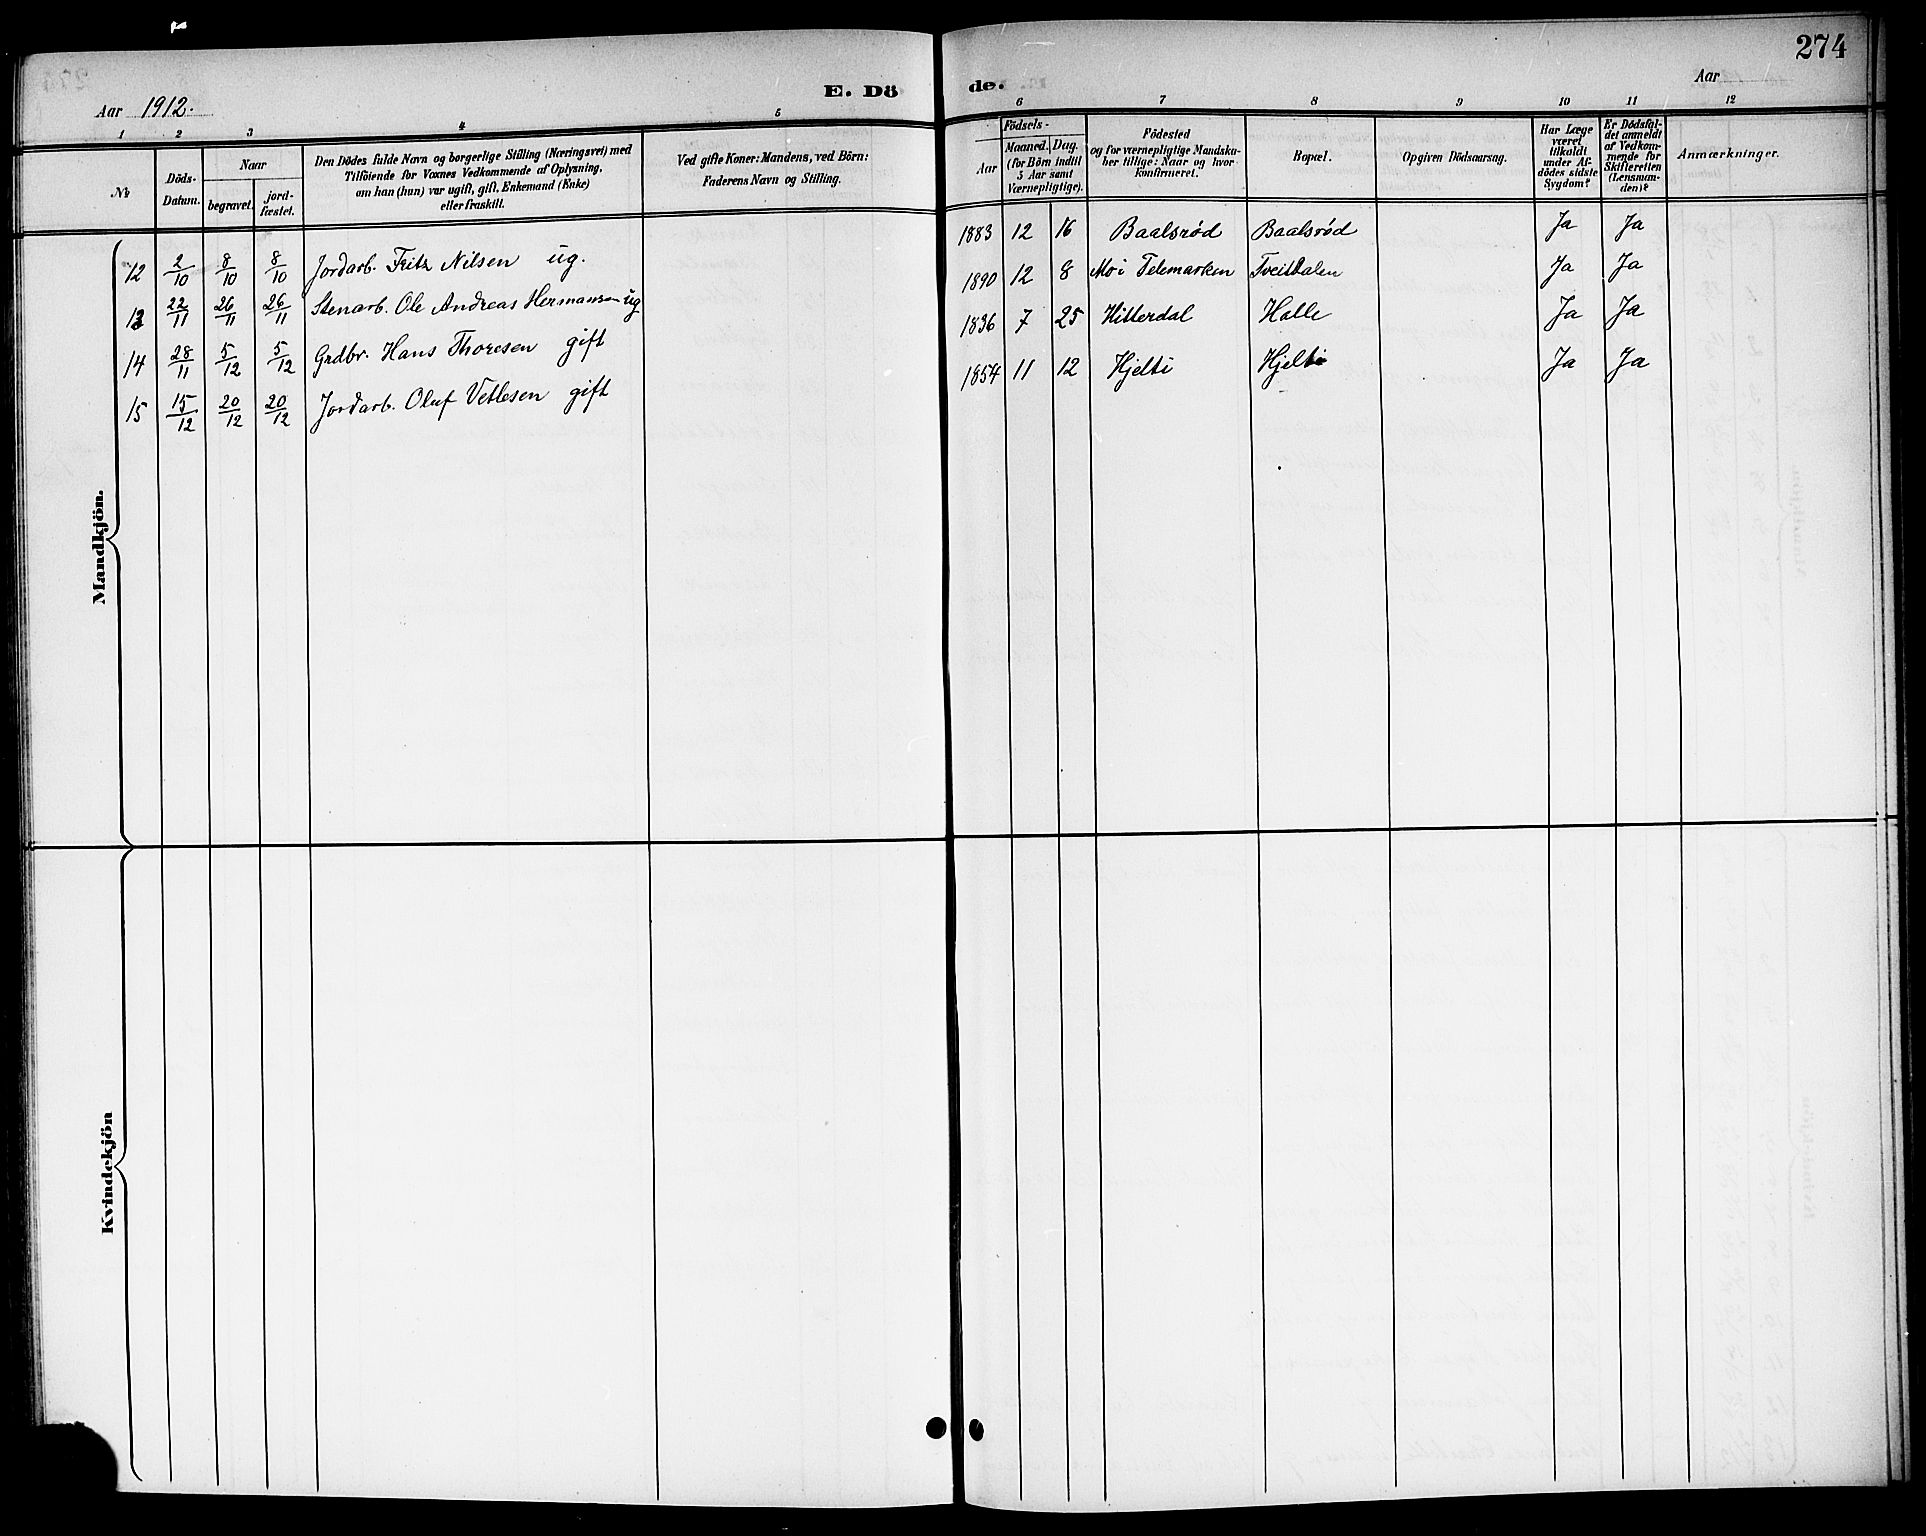 274
E. Dö de.
Aar 1912. Aar
1 2 3 4 5 6 7 8 9 10 11 12
№ Döds-Datum. Naar begravet. jord-fæstet. Den Dödes fulde Navn og borgerlige Stilling (Næringsvei) med Tilföiende for Voxnes Vedkommende af Oplysning, om han (hun) var ugift, gift, Enkemand (Enke) eller fraskilt. Ved gifte Koner: Mandens, ved Börn: Faderens Navn og Stilling. Födsels- Aar Maaned. Dag. (for Børn indtil 5 Aar samt Værnepligtige). Födested og for værnepligtige Mandskaber tillige: Naar og hvor konfirmeret. Bopæl. Opgiven Dödsaarsag. Har Læge været tilkaldt under Afdödes sidste Sygdom? Er Dödsfaldet anmeldt af Vedkommende for Skifteretten (Lensmanden)? Anmærkninger.
Mandkjön.
12 2/10 8/10 8/10 Jordarb. Fritz Nilsen ug. 1883 12 16 Baalsrød Baalsrød Ja Ja
13 22/11 26/11 26/11 Stenarb. Ole Andreas Hermansen ug 1890 12 8 Mo i Telemarken Tveitdalen Ja Ja
14 28/11 5/12 5/12 Grdbr. Hans Thoresen gift 1836 7 25 Hitterdal Halle Ja Ja
15 15/12 20/12 20/12 Jordarb. Oluf Vetlesen gift 1854 11 12 Hjelti Hjelti Ja Ja
Kvindekjön